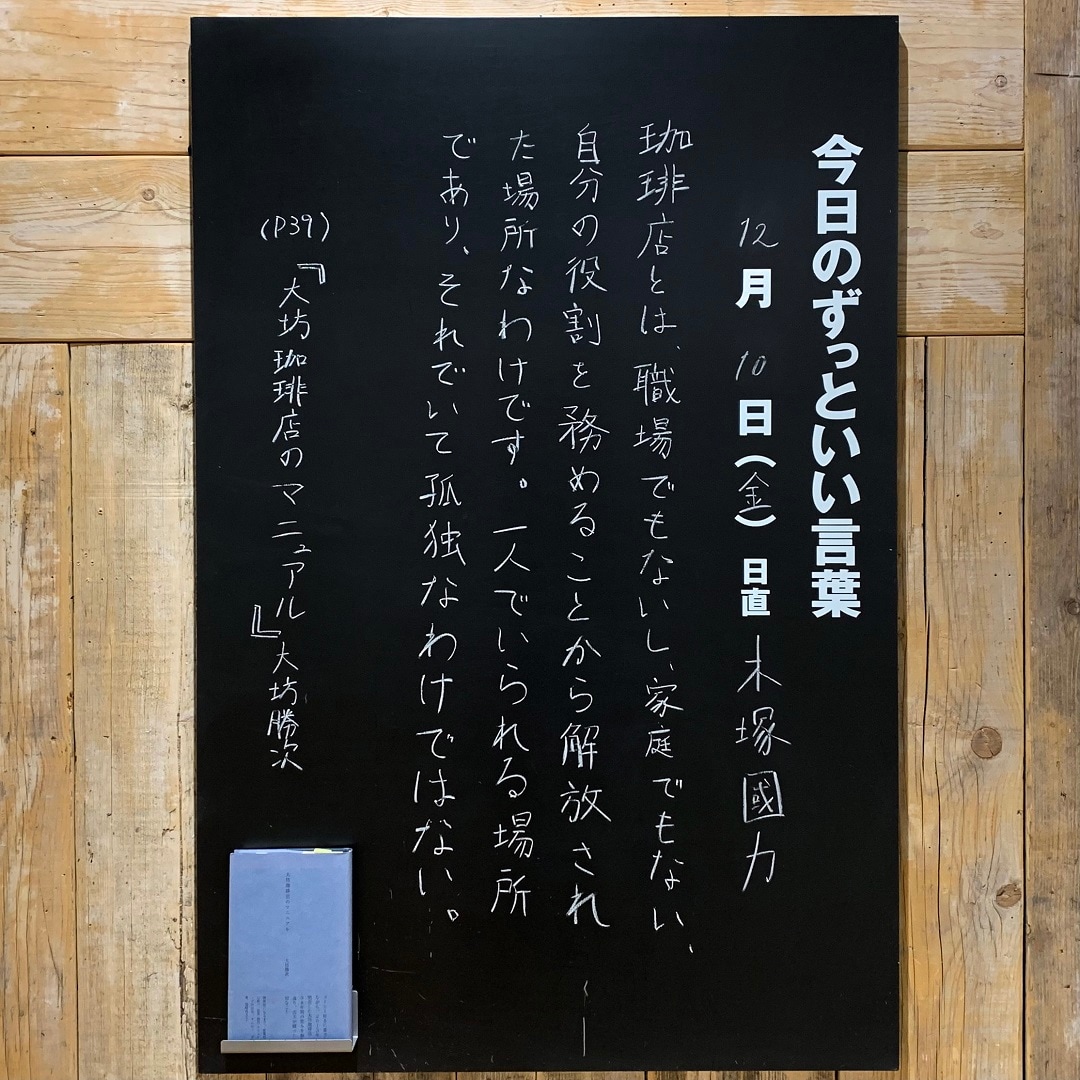 今日のずっといい言葉
12月10日(金) 日直 木塚國力
珈琲店とは、職場でもないし、家庭でもない、
自分の役割を務めることから解放され
た場所なわけです。一人でいられる場所
であり、それでいて孤独なわけではない。
(P39)『大坊珈琲店のマニュアル』大坊勝次
大坊珈琲店のマニュアル
大坊勝次